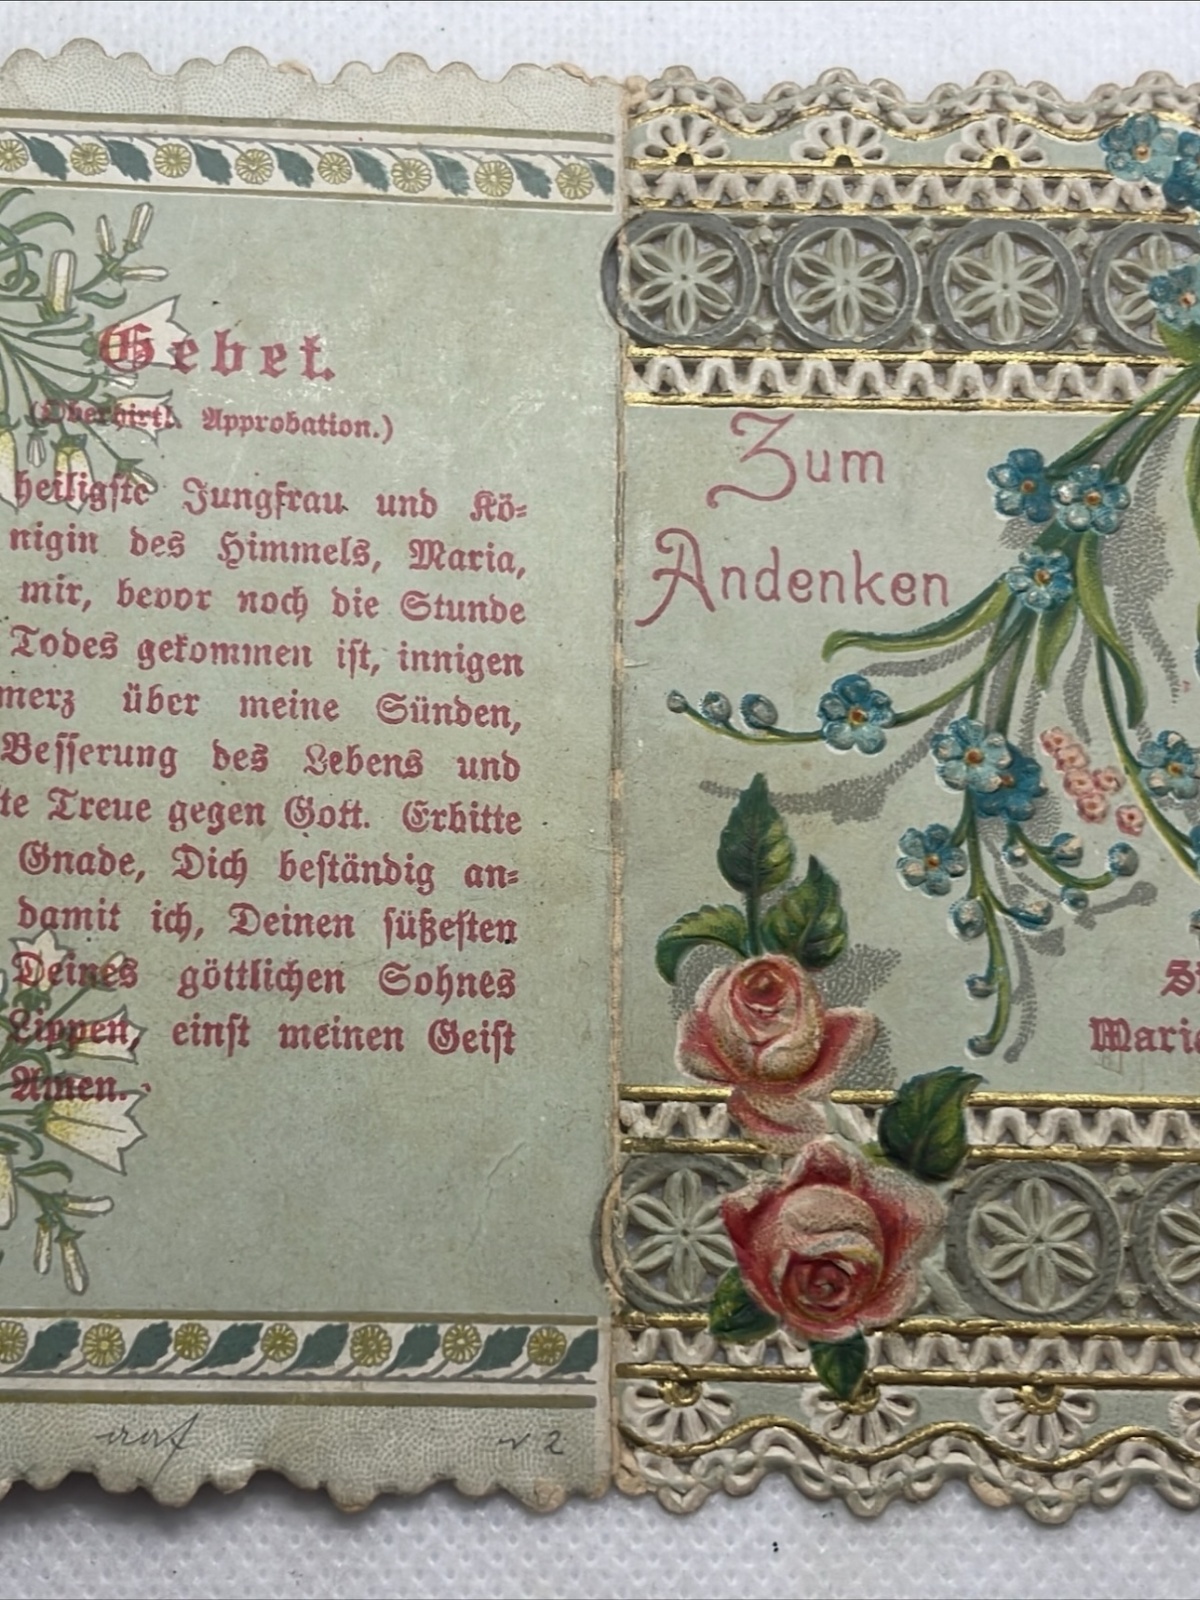 Gebet.
(Oberhirtl. Approbation.)
heiligste Jungfrau und Kö-
nigin des Himmels, Maria,
mir, bevor noch die Stunde
Todes gekommen ist, innigen
merz über meine Sünden,
Besserung des Lebens und
te Treue gegen Gott. Erbitte
Gnade, Dich beständig an-
damit ich, Deinen süßesten
Deines göttlichen Sohnes
Lippen, einst meinen Geist
Amen.
Zum
Andenken